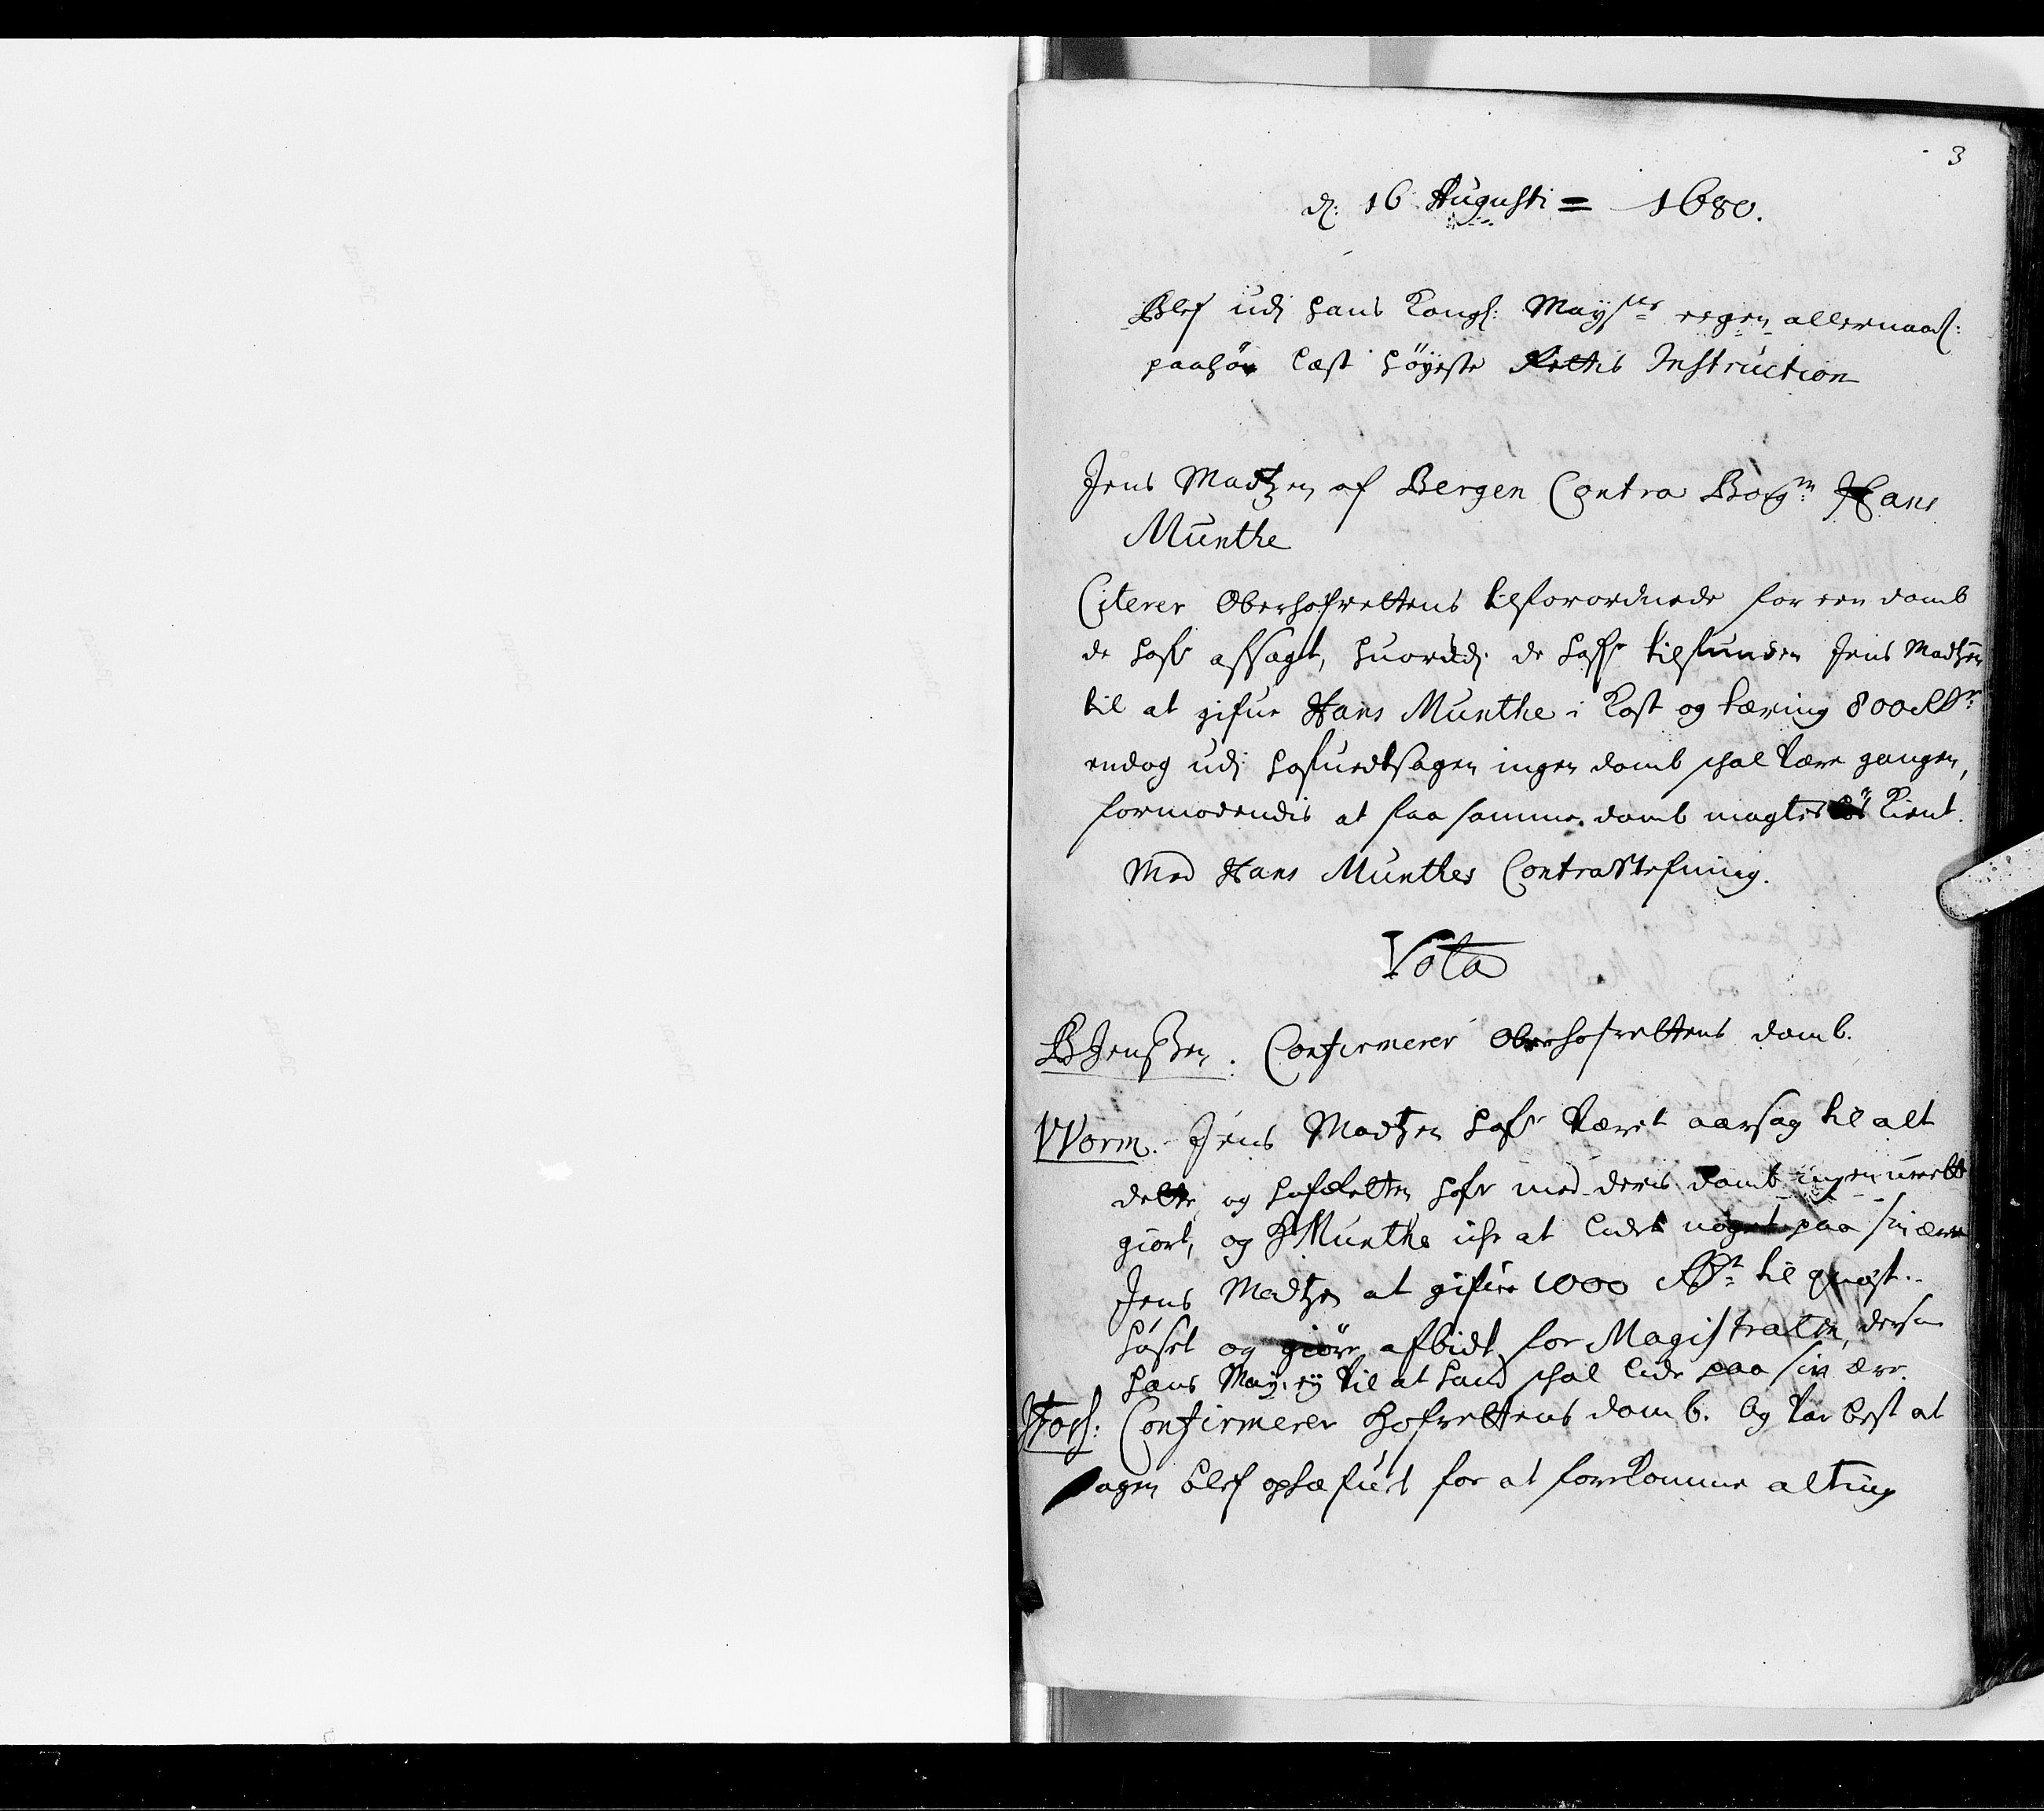 3
d: 16 Augusti = 1680.
Blef udj hans Kongl: Mayts egen allernaad:
paahör læst höyeste Rettis Instruction
Jens Madtzen af Bergen Contra Borgm: Hans
Munthe
Citerer Oberhofrettens tilforordnede for een domb
de hafr afsagt, huorudj de hafr tilfunden Jens Madtzen
til at gifue Hans Munthe i Kost og tæring 800 Rdr:
endog udj hofuedtsagen ingen domb schal være gangen,
formodendis at faa samme domb magteslös kient.
Med Hans Munthes ContraStefning.
Vota
B Jenssen: Confirmerer Oberhofrettens domb.
Worm. Jens Madtzen hafr været aarsag til alt
dette, og hofretten hafr med deris domb ingen urett
giort, og H Munthe iche at lide noget paa sin ære
Jens Madtzen at gifue 1000 Rdr: til
huset og giöre afbidt for Magistraten, dersom
hans May. ey vil at hand schal lide paa sin ære.
Confirmerer Hofrettens domb. Og var best at
sagen blef ophæfuet for at forekomme alting